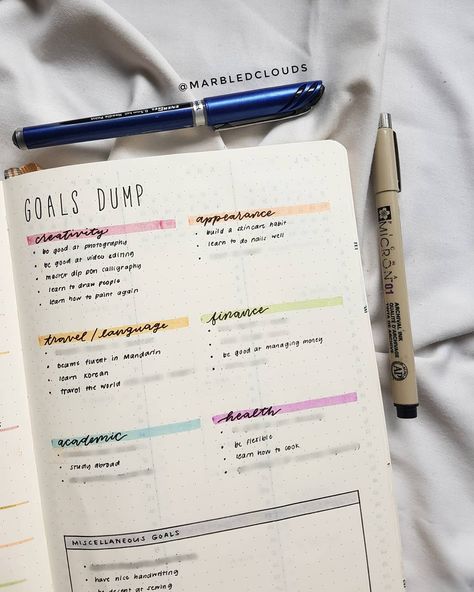 @MARBLEDCLOUDS
ENERGEL 0.5mm Needle Point
GOALS DUMP
creativity
• be good at photography
• be good at video editing
• master dip pen calligraphy
• learn to draw people
• learn how to paint again
appearance
• build a skincare habit
• learn to do nails well
travel / language
• became fluent in Mandarin
• learn Korean
• travel the world
finance
• be good at managing money
academic
• study abroad
health
• be flexible
• learn how to cook
MISCELLANEOUS GOALS
• have nice handwriting
• be decent at sewing
MICRON 01
ARCHIVAL INK
AP